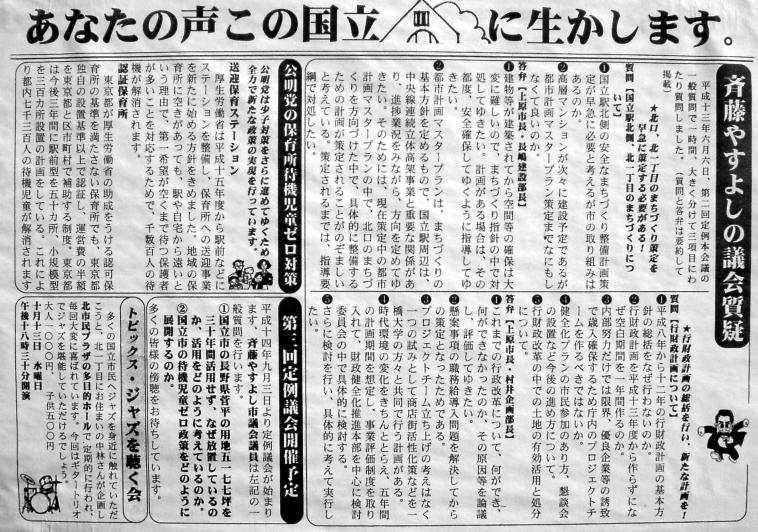 あなたの声この国立に生かします。
斉藤やすよしの議会質疑
平成十三年六月六日、第二回定例本会議の
一般質問で一時間、大きく分けて三項目にわ
たり質問しました。(質問と答弁は要約して
掲載)
★北口、北一丁目のまちづくり策定を
早急に策定する必要がある!
質問【国立駅北側、北一丁目のまちづくりにつ
いて】
❶国立駅北側の安全なまちづくり整備計画策
定が早急に必要と考えるが市の取り組みは
あるのか。
❷高層マンションが次々に建設予定であるが
都市計画マスタープラン策定までなにもし
なくて良いのか。
答弁【上原市長・長嶋建設部長】
❶建物等が建築されてから空間等の確保は大
変に難しいので、まちづくり指針の中で対
処してゆきたい。計画がある場合は、その
都度、安全確保してゆくように指導してゆ
きたい。
❷都市計画マスタープランは、まちづくりの
基本方針を定めるもので、国立駅周辺は、
中央線連続立体高架事業と重要な関係があ
り、進捗業況をみながら、方向を定めてゆ
きたい。そのためには、現在策定中の都市
計画マスタープランの中で、北口のまちづ
くりを方向づけた中で、具体的に整備する
ための計画が策定されることがのぞましい
と考えている。策定されるまでは、指導要
綱で対処したい。
公明党の保育所待機児童ゼロ対策
公明党は少子対策をさらに進めてゆくため
全力で新たな政策の実現を行っています。
送迎保育ステーション
厚生労働省は平成十五年度から駅前などに
ステーションを整備し、保育所への送迎事業
を新たに始める方針をきめました。地域の保
育所に空きがあっても、駅や自宅から遠いと
いう理由で、第一希望が空くまで待つ保護者
が多いことを対応するためで、千数百人の待
機児が解消されます。
認証保育所
東京都が厚生労働省の助成をうける認可保
育所の基準を満たさない保育所でも、東京都
独自の設置基準以上で認証し、運営費の半額
を東京都と区市町村で補助する制度、東京都
は今後三年間に駅前型を五十カ所、小規模型
を三百カ所設置の計画をしている。これによ
り都内七千三百人の待機児童が解消されます
★行財政計画の総括を行い、新たな計画を!
質問【行財政計画について】
❶平成八年から十二年の行財政計画の基本方
針の総括をなぜ行わないのか。
❷行財政計画を平成十三年度から作らずにな
ぜ空白期間を一年間作るのか。
❸内部努力だけでは限界、優良企業等の誘致
で歳入確保するため庁内のプロジェクトチ
ームを作るべきではないか。
❹健全化プランの市民参加のあり方、懇談会
の設置など今後の進め方について。
❺行財政改革の中での土地の有効活用と処分
について。
答弁【上原市長・村井企画部長】
❶これまでの行政改革について、何ができ、
何ができなかったのか、その原因等を論議
し、評価してゆきたい。
❷懸案事項の職務給導入問題を解決してから
の策定となったためである。
❸プロジェクトチーム立ち上げの考えはなく
一つの試みとして商店街活性化策などを一
橋大学の方々と共同で行う計画がある。
❹時代環境の変化をきちんととらえ、五年間
の計画期間を想定し、事業評価制度を取り
入れて、財政健全化推進本部を中心に検討
委員会の中で具体的に検討する。
❺さらに検討を行い、具体的に考えて実行し
たい。
第三回定例議会開催予定
平成十四年九月三日より定例議会が始まり
ます。斉藤やすよし市議会議員は左記の一
般質問を行います。
①国立市の長野県菅平の用地五一七七坪を
三十年間活用せず、なぜ放置しているの
か、活用をどのように考えているのか。
②国立市の待機児童ゼロ政策をどのように
展開するのか。
多くの皆様の傍聴をお待ちしています。
トピックス・ジャズを聴く会
多くの国立市民へジャズを身近に触れていただ
こうと、北一丁目にお住まいの中林さんが企画し
北市民プラザの多目的ホールで定期的に行われ、
毎回大変に喜ばれています。今回はギタートリオ
でジャズを堪能していただけるでしょう。
大人一〇〇〇円、子供五〇〇円
十月十三日 水曜日
午後十八時三十分開演